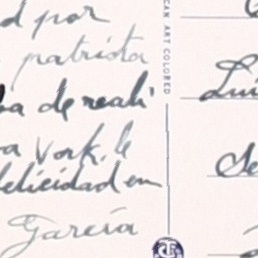 d por
patriota
ba de reali
va York, le
felicidad en
García
CAN ART COLORED
Lui
Se